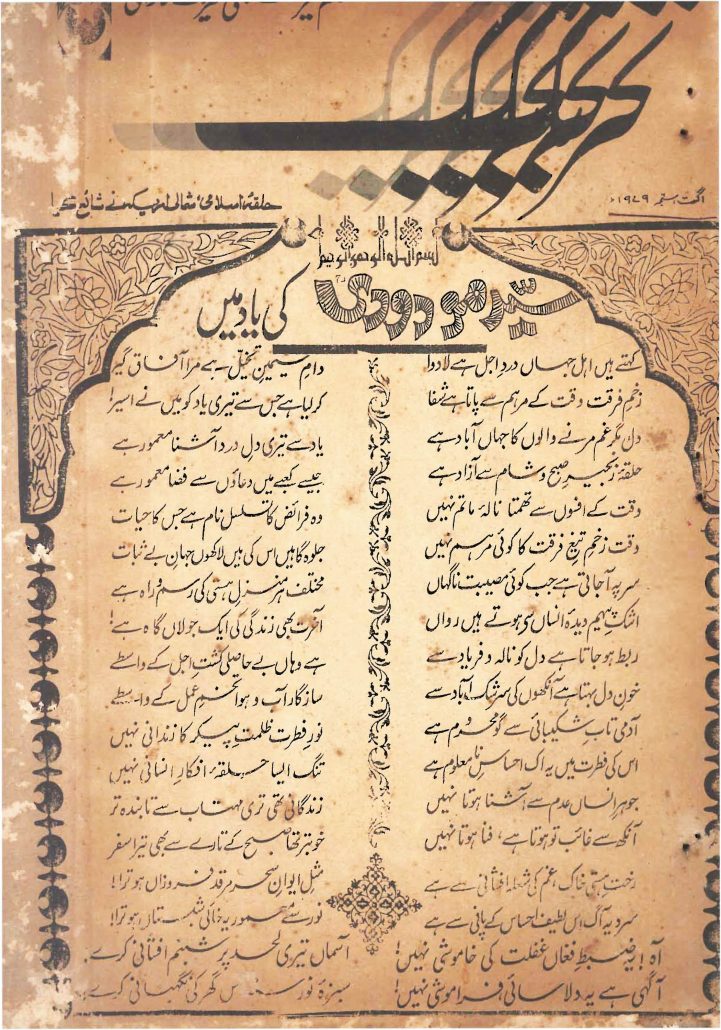 تحریک
اگست، ستمبر ۱۹۷۹ء
حلقۂ اسلامی شمالی امریکہ نے شائع کیا
بسم اللہ الرحمن الرحیم
سید مودودیؒ کی یاد میں
کہتے ہیں اہل جہاں دردِ اجل ہے لادوا
زخمِ فرقت وقت کے مرہم سے پاتا ہے شفا
دل مگر غم مرنے والوں کا جہاں آباد ہے
حلقۂ زنجیرِ صبح و شام سے آزاد ہے
وقت کے افسوں سے تھمتا نالۂ ماتم نہیں
وقت زخمِ تیغِ فرقت کا کوئی مرہم نہیں
سر پہ آجاتی ہے جب کوئی مصیبت ناگہاں
اشک پیہم دیدۂ انساں سے ہوتے ہیں رواں
ربط ہو جاتا ہے دل کو نالہ و فریاد سے
خونِ دل بہتا ہے آنکھوں کی سرشک آباد سے
آدمی تابِ شکیبائی سے گو محروم ہے
اس کی فطرت میں یہ اک احساسِ نامعلوم ہے
جوہرِ انساں عدم سے آشنا ہوتا نہیں
آنکھ سے غائب تو ہوتا ہے، فنا ہوتا نہیں
رختِ ہستی خاک، غم کی شعلہ افشانی سے ہے
سرد یہ آگ اس لطیف احساس کے پانی سے ہے
آہ! یہ ضبطِ فغاں غفلت کی خاموشی نہیں!
آگہی ہے یہ دلاسائی، فراموشی نہیں!
دامِ سیمینِ تخیل ہے مرا آفاق گیر
کر لیا ہے جس سے تیری یاد کو میں نے اسیر!
یاد سے تیری دلِ درد آشنا معمور ہے
جیسے کعبے میں دعاؤں سے فضا معمور ہے
وہ فرائض کا تسلسل نام ہے جس کا حیات
جلوہ گاہیں اس کی ہیں لاکھوں جہانِ بے ثبات
مختلف ہر منزلِ ہستی کی رسم و راہ ہے
آخرت بھی زندگی کی ایک جولاں گاہ ہے!
ہے وہاں بے حاصلی کشتِ اجل کے واسطے
سازگار آب و ہوا تخمِ عمل کے واسطے
نورِ فطرت ظلمتِ پیکر کا زندانی نہیں
تنگ ایسا حلقۂ افکارِ انسانی نہیں
زندگانی تھی تری مہتاب سے تابندہ تر
خوب تر تھا صبح کے تارے سے بھی تیرا سفر
مثلِ ایوانِ سحر مرقد فروزاں ہو ترا!
نور سے معمور یہ خاکی شبستاں ہو ترا!
آسماں تیری لحد پر شبنم افشانی کرے
سبزۂ نورستہ اس گھر کی نگہبانی کرے